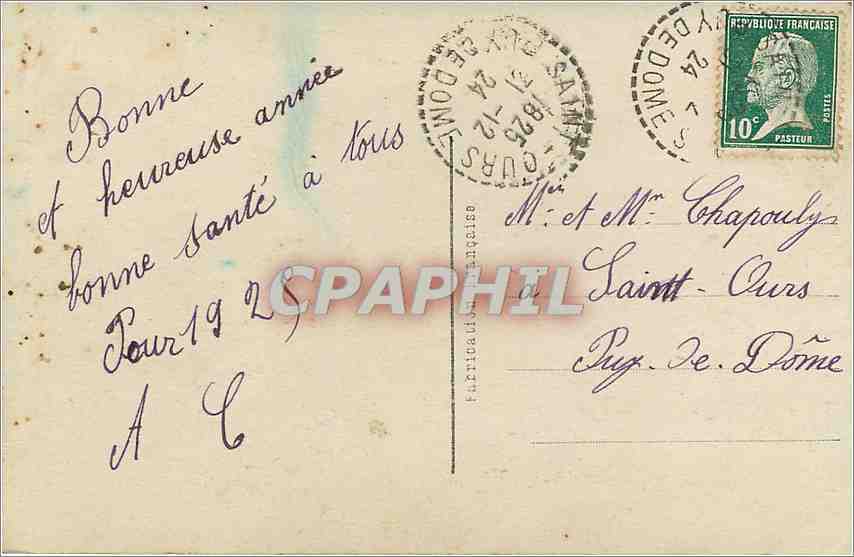 Bonne
et heureuse année
bonne santé à tous
Pour 1925
A C
SAINT OURS
PUY DE DOME
1825
31-12
24
Y DE DOME
24
REPUBLIQUE FRANÇAISE
10c
POSTES
PASTEUR
Fabrication Française
Mr. et Mme Chapouly
à Saint-Ours
Puy-de-Dôme
CPAPHIL